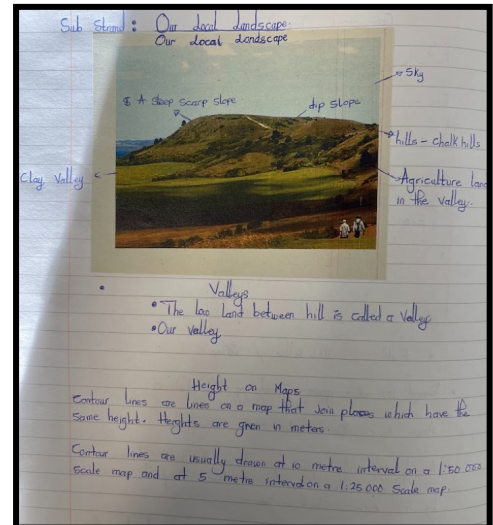 Sub Strand: Our Local Landscape
Our Local Landscape
Sky
A steep scarp slope
dip slope
hills - chalk hills
Clay Valley
Agriculture land
in the valley.
Valleys
• The low land between hill is called a Valley
• Our valley
Height on Maps
Contour lines are lines on a map that join places which have the
same height. Heights are given in meters.
Contour lines are usually drawn at 10 metre interval on a 1:50 000
scale map and at 5 metre interval on a 1:25 000 Scale map.